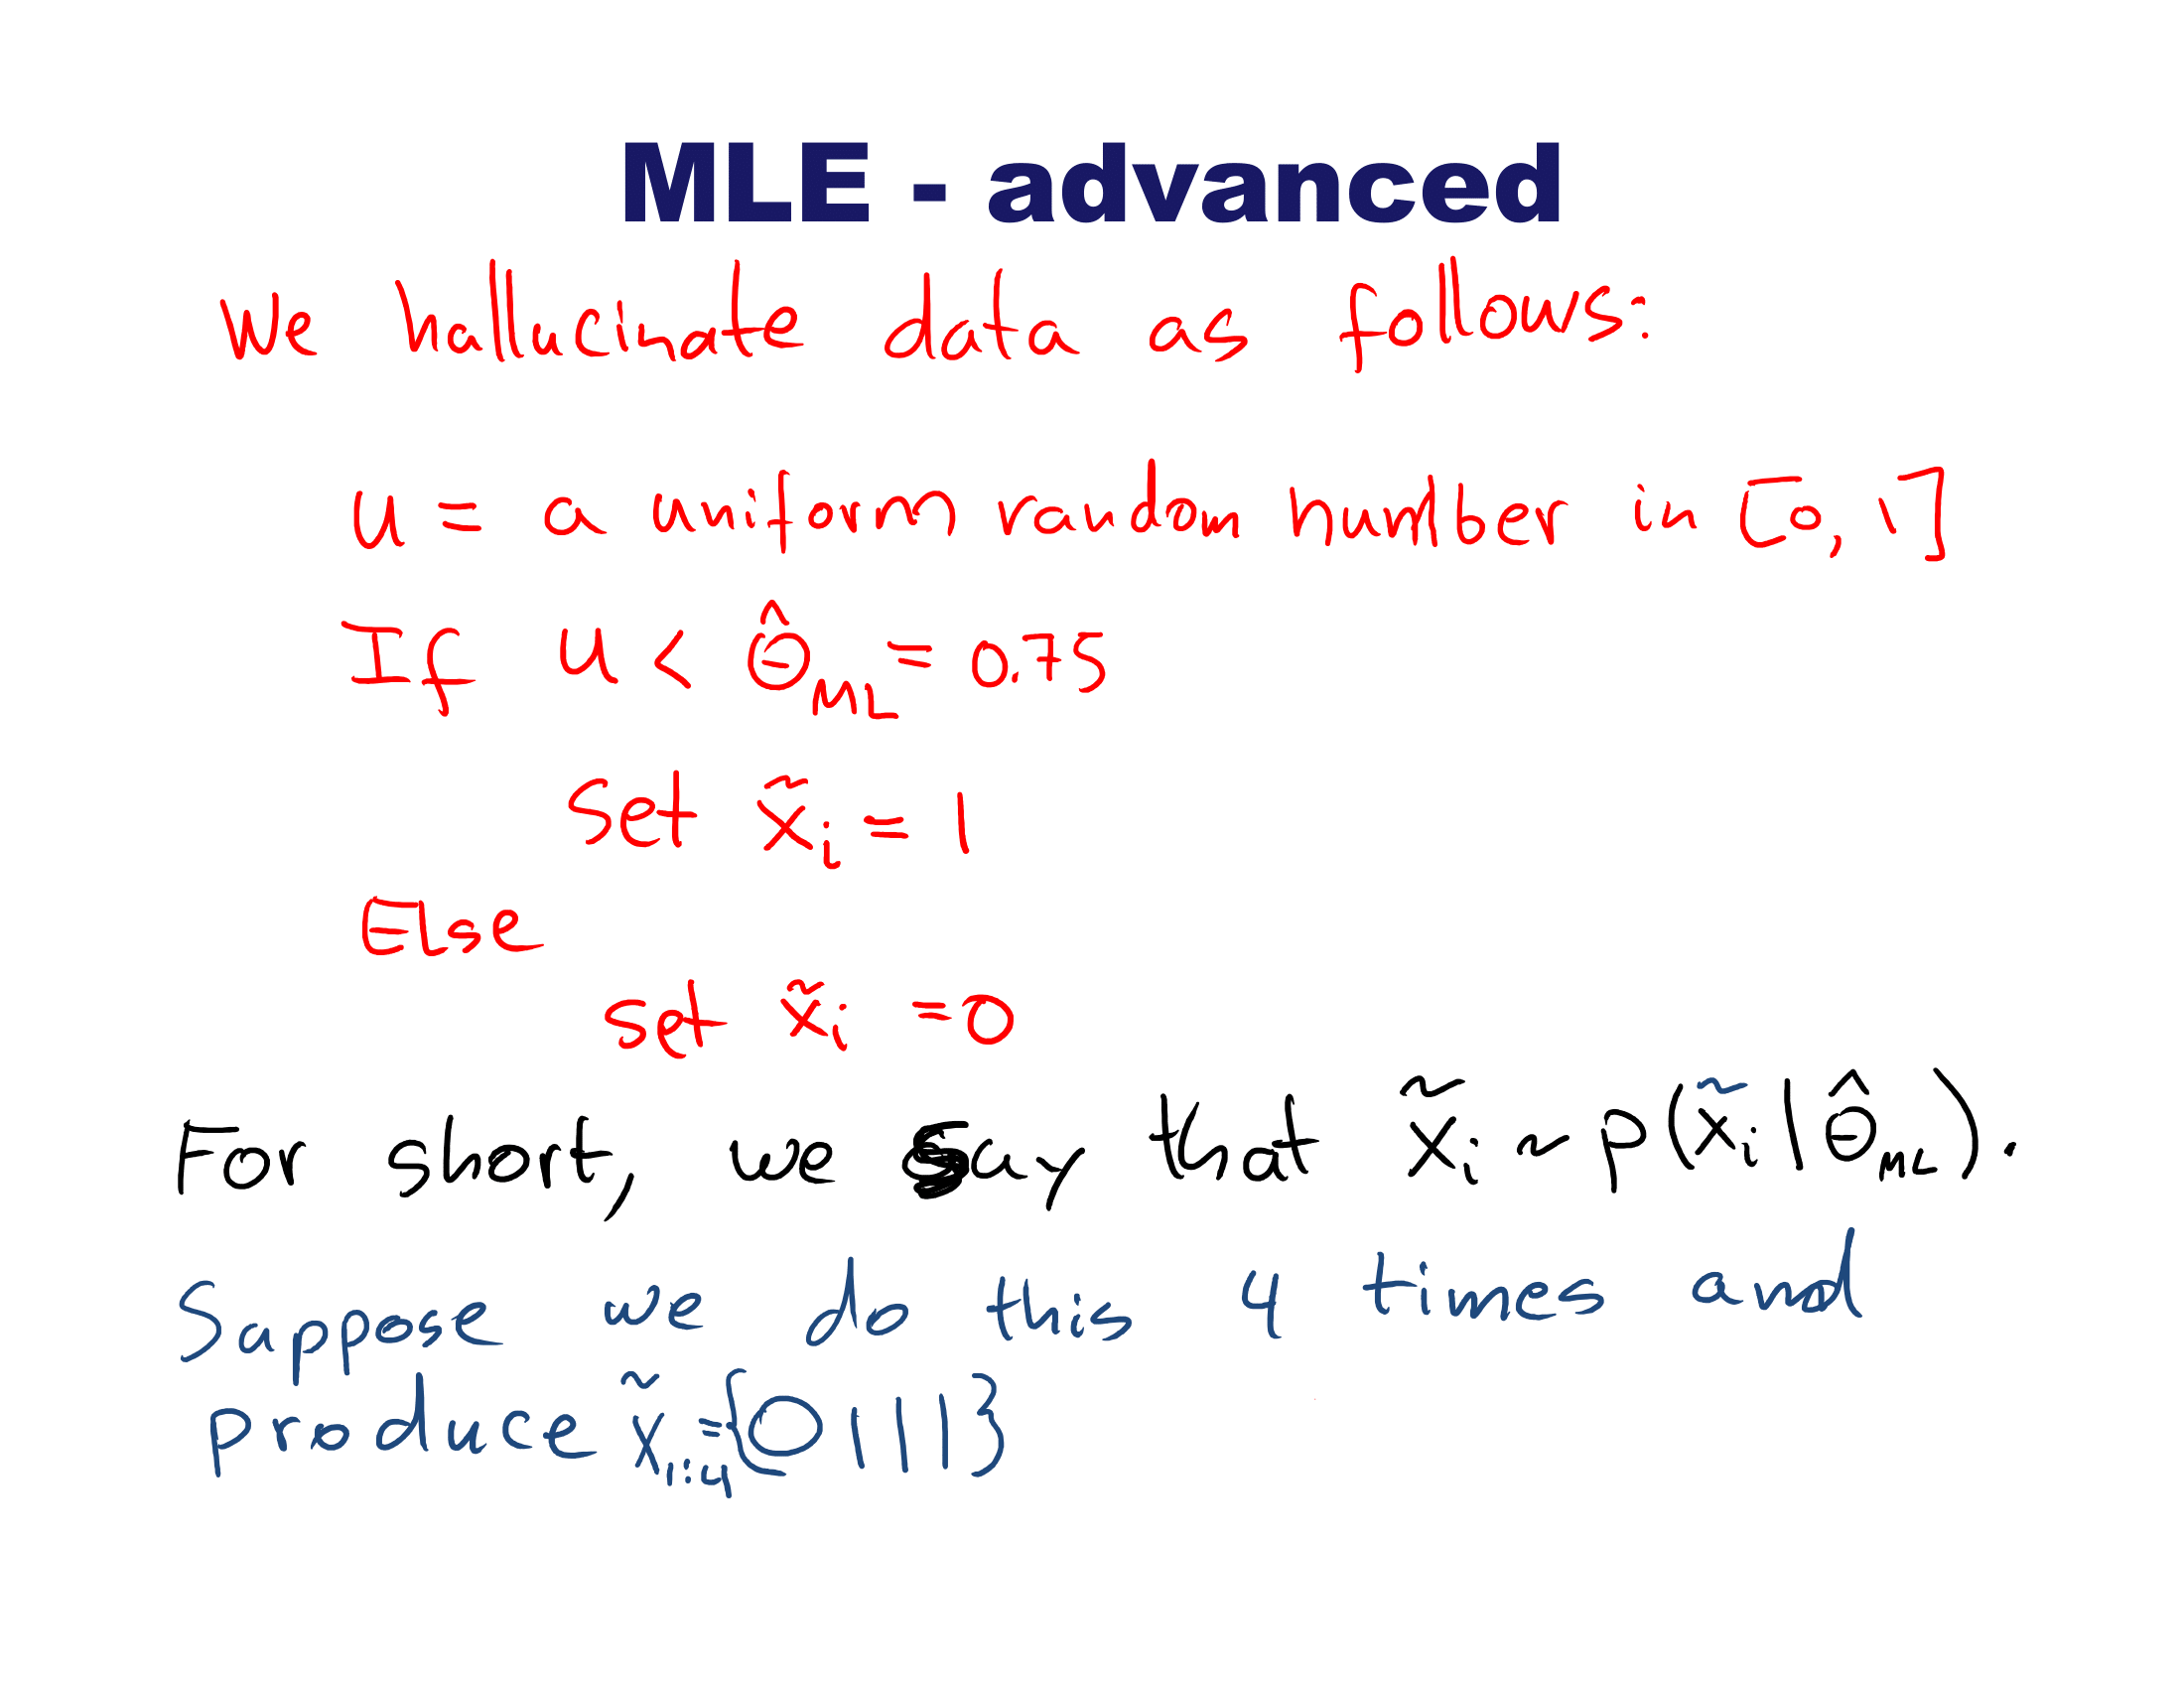 MLE - advanced
We hallucinate data as follows:
u = a uniform random number in [0, 1]
If u < θ̂_ML = 0.75
Set x̃_i = 1
Else
set x̃_i = 0
For short, we say that x̃_i ~ P(x̃_i | θ̂_ML).
Suppose we do this 4 times and
produce x̃_1:4 = {0 1 1 1}